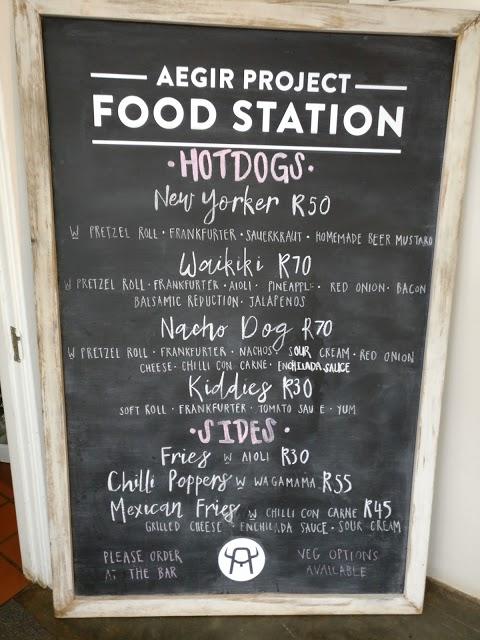 AEGIR PROJECT
FOOD STATION
·HOTDOGS·
New Yorker R50
W PRETZEL ROLL · FRANKFURTER · SAUERKRAUT · HOMEMADE BEER MUSTARD
Waikiki R70
W PRETZEL ROLL · FRANKFURTER · AIOLI · PINEAPPLE · RED ONION · BACON
BALSAMIC REDUCTION · JALAPENOS
Nacho Dog R70
W PRETZEL ROLL · FRANKFURTER · NACHOS · SOUR CREAM · RED ONION
CHEESE · CHILLI CON CARNE · ENCHILADA SAUCE
Kiddies R30
SOFT ROLL · FRANKFURTER · TOMATO SAU E · YUM
·SIDES·
Fries W AIOLI R30
Chilli Poppers W WAGAMAMA R55
Mexican Fries W CHILLI CON CARNE R45
GRILLED CHEESE · ENCHILADA SAUCE · SOUR CREAM
PLEASE ORDER
AT THE BAR
VEG OPTIONS
AVAILABLE